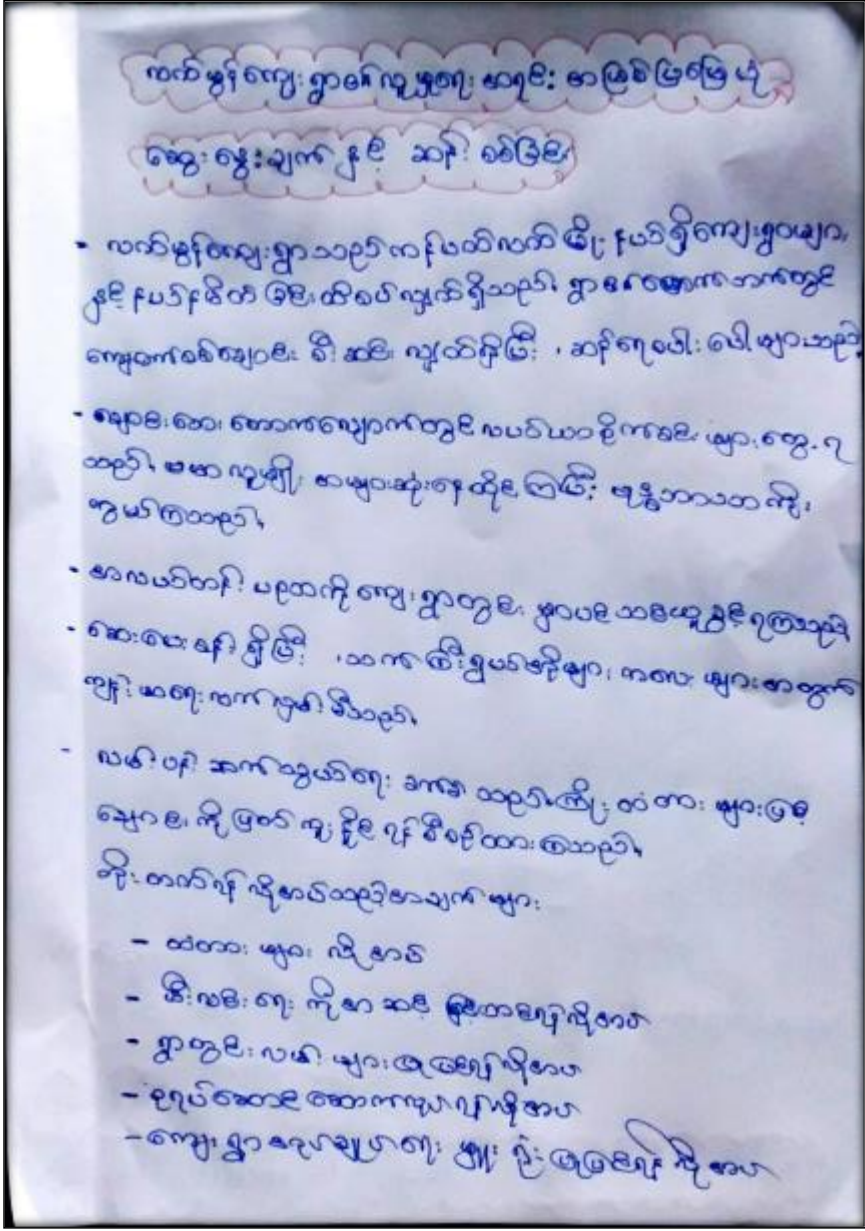 လက်မွန်ကျေးရွာ၏လူမှုရေး အရင်း အမြစ်ပြမြေပုံ
ဆွေးနွေးချက် နှင့် ဆန်းစစ်ခြင်း
- လက်မွန်ကျေးရွာသည်ကန်ပတ်လက်မြို့နယ်ရှိကျေးရွာများ
နှင့်နယ်နမိတ်ခြင်းထိစပ်လျှက်ရှိသည်။ ရွာ၏တောက်ဘက်တွင်
ကျောက်စစ်ချောင်း စီးဆင်း လျှက်ရှိပြီး ၊ ဆန်ရေစပါး ပေါများသည်။
- ချောင်းဘေး တောက်လျှောက်တွင်လယ်ယာစိုက်ခင်း များတွေ့ရ
သည်။ ဗမာ လူမျိုး အများဆုံးနေထိုင်ကြပြီး ဗုဒ္ဓဘာသာကိုး
ကွယ်ကြသည်။
- အလယ်တန်း ပညာကိုကျေးရွာတွင်း မှာပင်သင်ယူခွင့်ရကြသည်။
- ဆေးပေးခန်း ရှိပြီး ၊သက်ကြီးရွယ်အိုများ၊ ကလေးများအတွက်
ကျန်းမာရေးလက်လှမ်းမီသည်။
- လမ်းပန်း ဆက်သွယ်ရေး ခက်ခဲသည်။ကြိုးတံတားများဖြင့်
ချောင်းကိုဖြတ်ကူးနိုင်ရန်စီစဉ်ထားကြသည်။
တိုးတက်ရန်လိုအပ်သည့်အချက်များ
- တံတားများ လိုအပ်
- မီးလင်းရေး ကိုအဆင့်မြှင့်တင်ရန်လိုအပ်
- ရွာတွင်းလမ်းများပြုပြင်ရန်လိုအပ်
- စုရပ်ဆောင်ဆောက်လုပ်ရန်လိုအပ်
- ကျေးရွာအုပ်ချုပ်ရေးမှူးရုံးပြုပြင်ရန်လိုအပ်